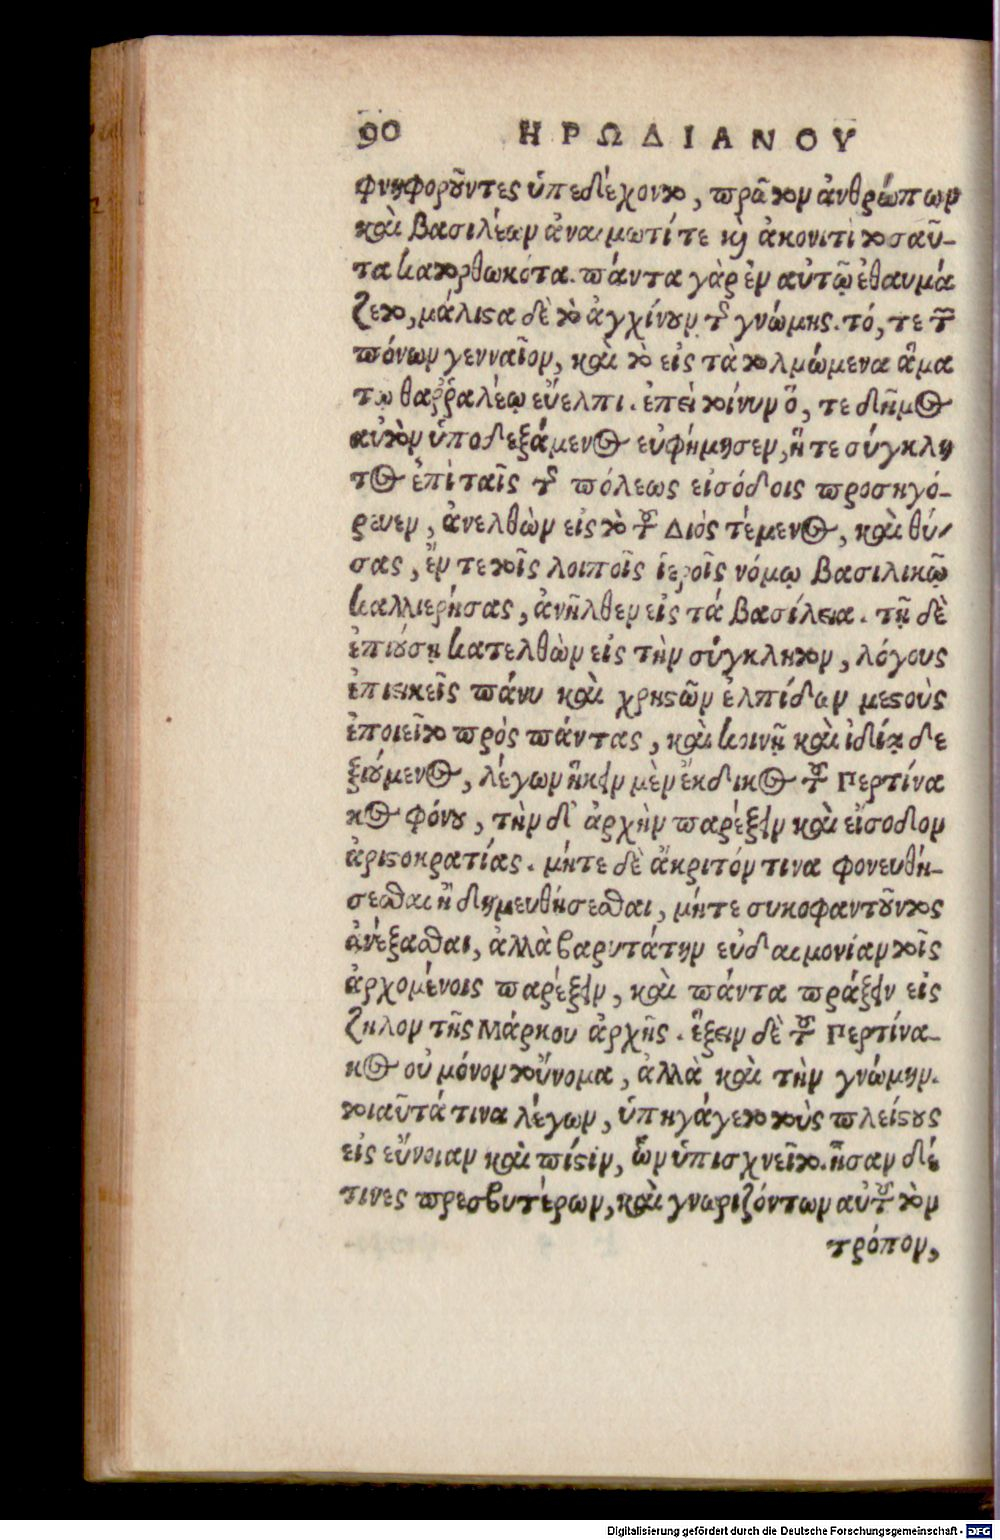 90 ΗΡΩΔΙΑΝΟΥ
φνηφοροῦντες ὑπεδέχοντο, πρᾶτον ἀνθρώπων
καὶ βασιλέων ἀναιμωτί τε καὶ ἀκονιτὶ τοσαῦ-
τα κατορθωκότα. πάντα γὰρ ἐν αὐτῷ ἐθαυμά
ζετο, μάλιστα δὲ τὸ ἀγχίνουν τῆς γνώμης. τό, τε τῶν
πόνων γενναῖον, καὶ τὸ εἰς τὰ τολμώμενα ἅμα
τῳ θαῤῥαλέῳ εὔελπι. ἐπεὶ τοίνυν ὅ, τε δῆμος
αὐτὸν ὑποδεξάμενος εὐφήμησεν, ἥ τε σύγκλη
τος ἐπὶ ταῖς τῆς πόλεως εἰσόδοις προσηγό-
ρευεν, ἀνελθὼν εἰς τὸ τοῦ Διός τέμενος, καὶ θύ-
σας, ἔν τε τοῖς λοιποῖς ἱεροῖς νόμῳ βασιλικῷ
καλλιερήσας, ἀνῆλθεν εἰς τά βασίλεια. τῇ δὲ
ἐπιούσῃ κατελθὼν εἰς τὴν σύγκλητον, λόγους
ἐπιεικεῖς πάνυ καὶ χρηστῶν ἐλπίδων μεστοὺς
ἐποιεῖτο πρὸς πάντας, καὶ κοινῇ καὶ ἰδίᾳ δε
ξιούμενος, λέγων ἥκειν μὲν ἔκδικος τοῦ Περτίνα
κος φόνου, τὴν δ' ἀρχὴν παρέξειν καὶ εἴσοδον
ἀριστοκρατίας. μήτε δὲ ἄκριτόν τινα φονευθή-
σεσθαι ἢ δημευθήσεσθαι, μήτε συκοφαντοῦντος
ἀνέξασθαι, ἀλλὰ βαρυτάτην εὐδαιμονίαν τοῖς
ἀρχομένοις παρέξειν, καὶ πάντα πράξειν εἰς
ζηλον τῆς Μάρκου ἀρχῆς. ἕξειν δὲ τοῦ Περτίνα-
κος οὐ μόνον τοὔνομα, ἀλλὰ καὶ τὴν γνώμην.
τοιαῦτά τινα λέγων, ὑπηγάγετο τοὺς πλείστους
εἰς εὔνοιαν καὶ πίστιν, ὧν ὑπισχνεῖτο. ἦσαν δέ
τινες πρεσβυτέρων, καὶ γνωριζόντων αὐτοῦ τὸν
τρόπον,
Digitalisierung gefördert durch die Deutsche Forschungsgemeinschaft - DFG